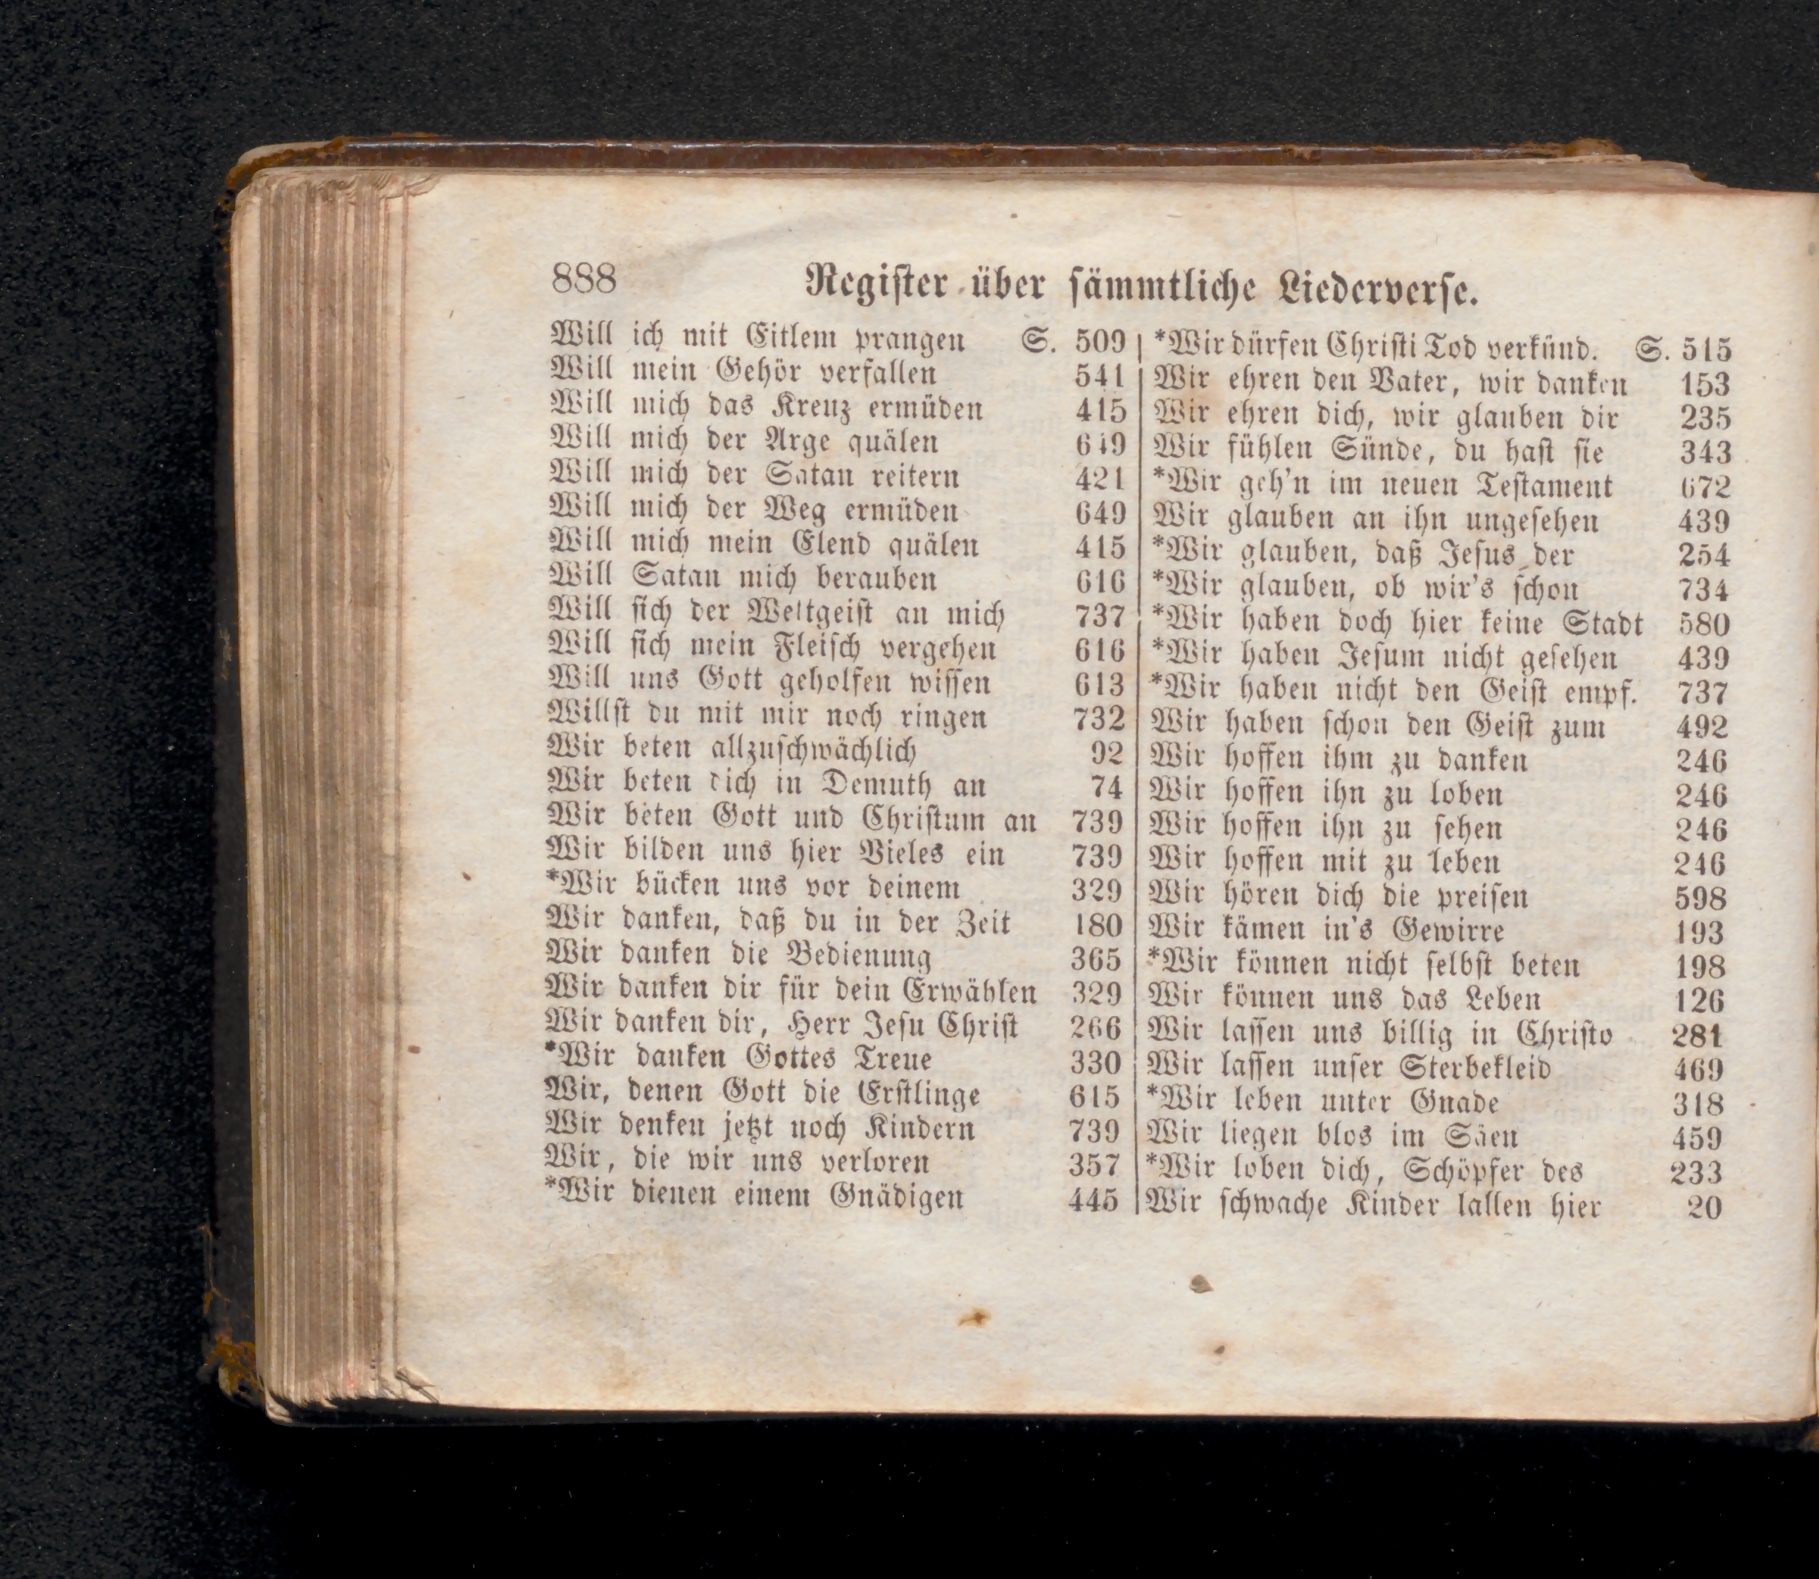 888 Register über sämmtliche Liederverse.
Will ich mit Eitlem prangen S. 509
Will mein Gehör verfallen 541
Will mich das Kreuz ermüden 415
Will mich der Arge quälen 649
Will mich der Satan reitern 421
Will mich der Weg ermüden 649
Will mich mein Elend quälen 415
Will Satan mich berauben 616
Will sich der Weltgeist an mich 737
Will sich mein Fleisch vergehen 616
Will uns Gott geholfen wissen 613
Willst du mit mir noch ringen 732
Wir beten allzuschwächlich 92
Wir beten dich in Demuth an 74
Wir beten Gott und Christum an 739
Wir bilden uns hier Vieles ein 739
*Wir bücken uns vor deinem 329
Wir danken, daß du in der Zeit 180
Wir danken die Bedienung 365
Wir danken dir für dein Erwählen 329
Wir danken dir, Herr Jesu Christ 266
*Wir danken Gottes Treue 330
Wir, denen Gott die Erstlinge 615
Wir denken jetzt noch Kindern 739
Wir, die wir uns verloren 357
*Wir dienen einem Gnädigen 445
*Wir dürfen Christi Tod verkünd. S. 515
Wir ehren den Vater, wir danken 153
Wir ehren dich, wir glauben dir 235
Wir fühlen Sünde, du hast sie 343
*Wir geh'n im neuen Testament 672
Wir glauben an ihn ungesehen 439
*Wir glauben, daß Jesus der 254
*Wir glauben, ob wir's schon 734
*Wir haben doch hier keine Stadt 580
*Wir haben Jesum nicht gesehen 439
*Wir haben nicht den Geist empf. 737
Wir haben schon den Geist zum 492
Wir hoffen ihm zu danken 246
Wir hoffen ihn zu loben 246
Wir hoffen ihn zu sehen 246
Wir hoffen mit zu leben 246
Wir hören dich die preisen 598
Wir kämen in's Gewirre 193
*Wir können nicht selbst beten 198
Wir können uns das Leben 126
Wir lassen uns billig in Christo 281
Wir lassen unser Sterbekleid 469
*Wir leben unter Gnade 318
Wir liegen blos im Säen 459
*Wir loben dich, Schöpfer des 233
Wir schwache Kinder lallen hier 20